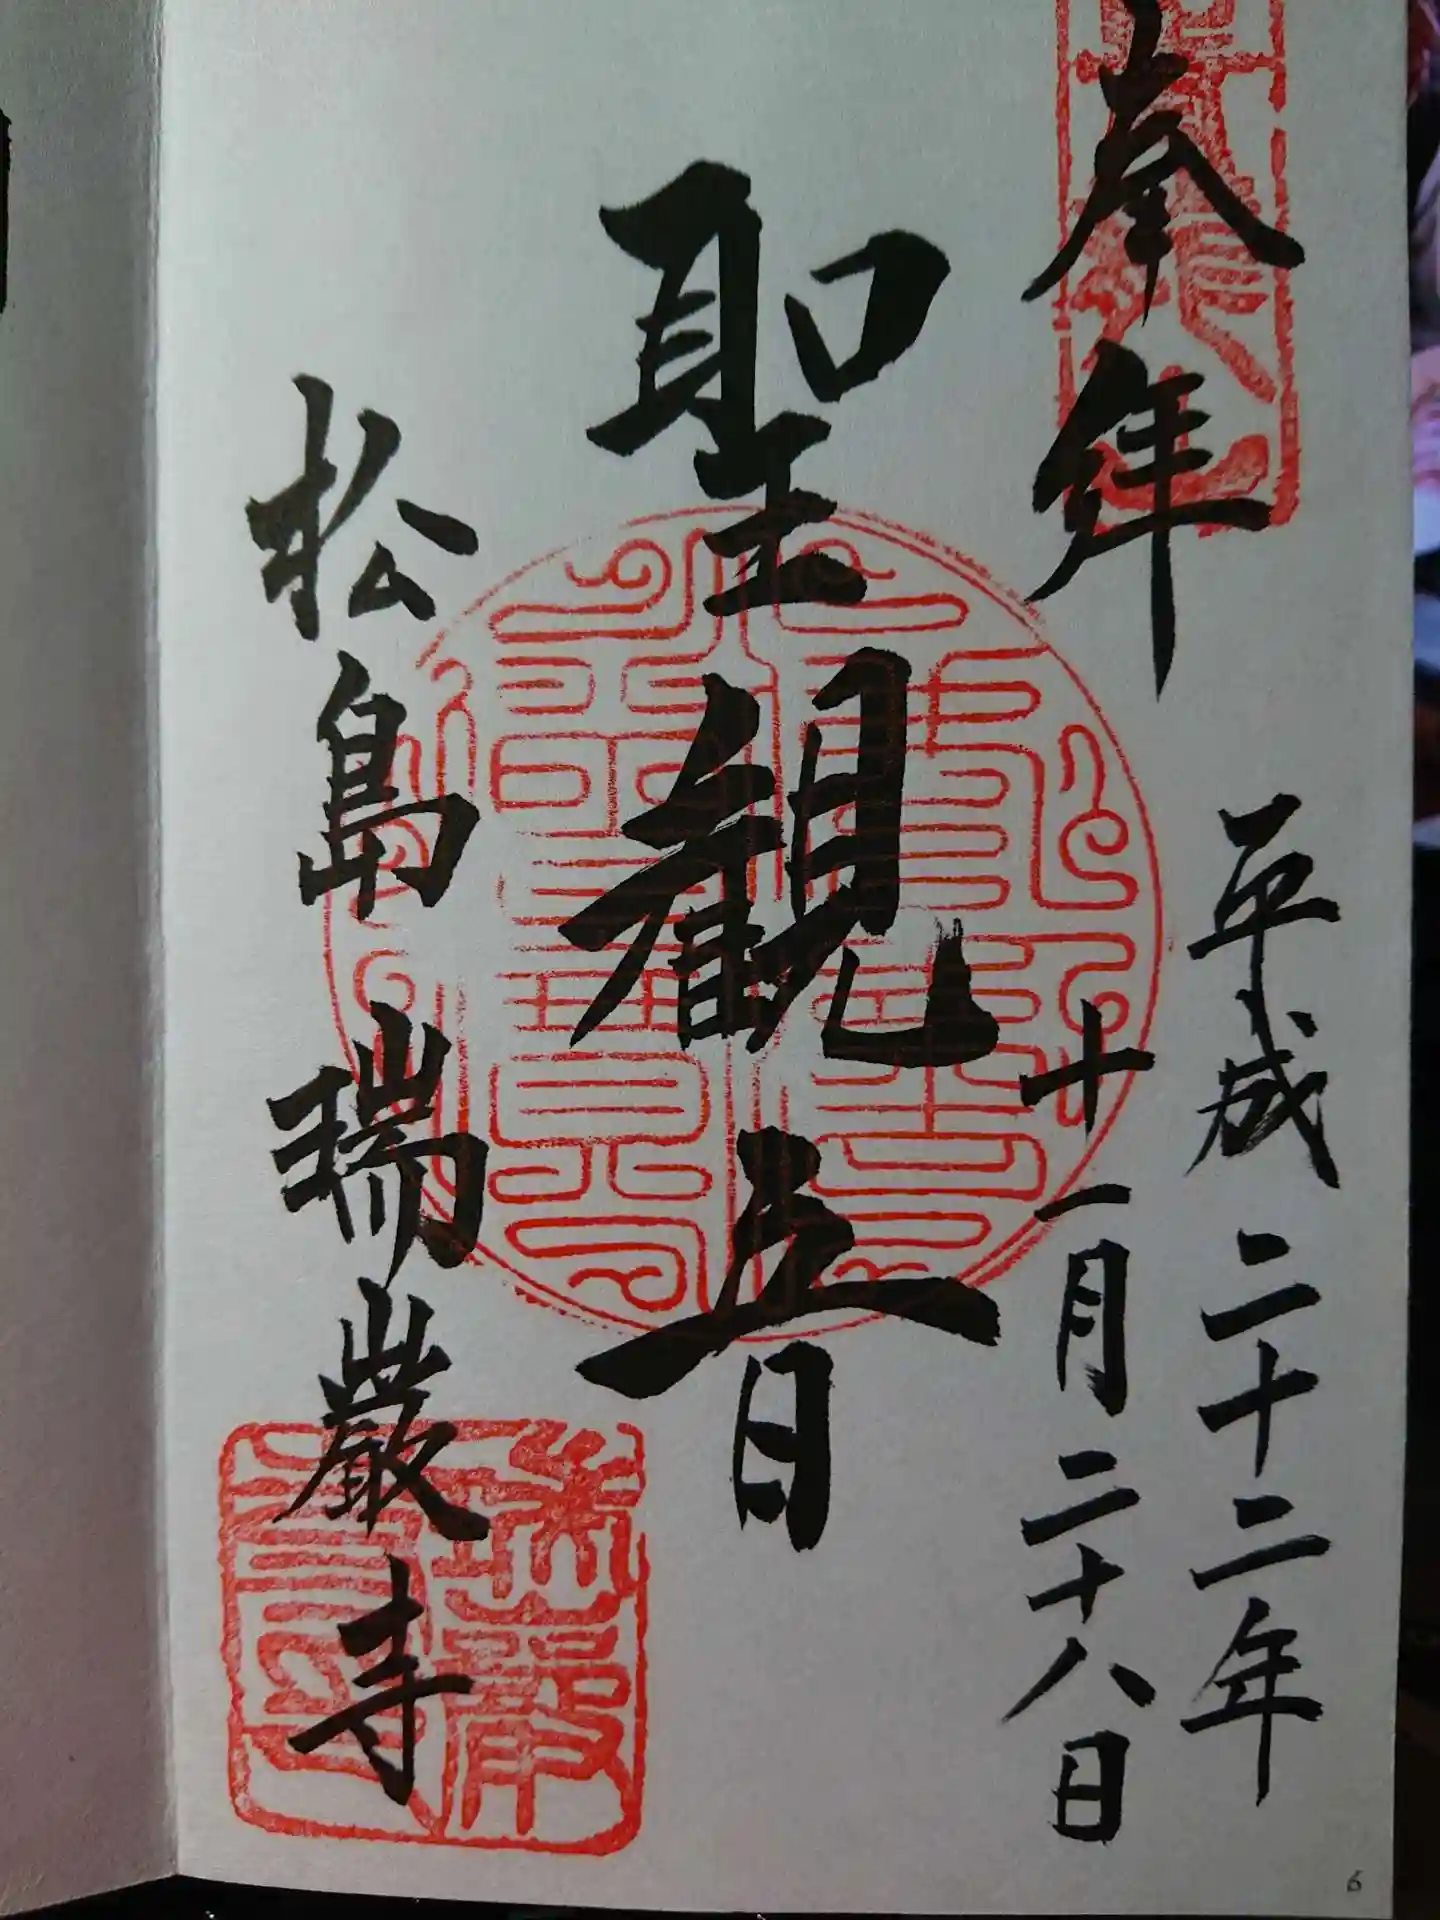 奉拜
平成二十二年
十一月二十八日
聖観音
松島瑞巌寺
6